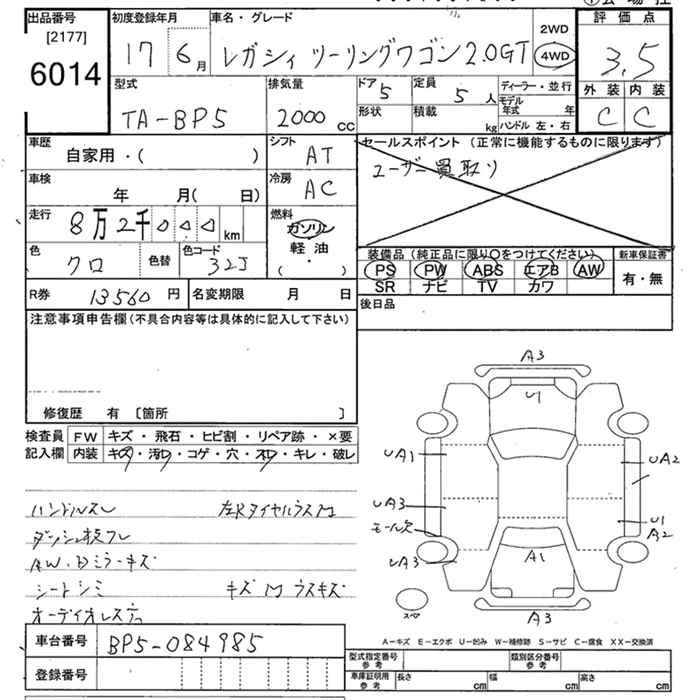 出品番号
[2177]
6014
初度登録年月
17 6月
車名・グレード
レガシィ ツーリングワゴン 2.0GT
2WD
4WD
評価点
3.5
外装 内装
C C
型式
TA-BP5
排気量
2000 CC
ドア 5
定員 5人
形状
積載 kg
ディーラー・並行
モデル年式 年
ハンドル 左・右
車歴
自家用・( )
シフト AT
車検
年 月( 日)
冷房 AC
走行
8万2千000km
燃料
ガソリン
軽油
( ・ )
色
クロ
色替
色コード
32J
R券 13560円
名変期限 月 日
セールスポイント (正常に機能するものに限ります)
ユーザー買取り
装備品 (純正品に限り○をつけてください)
PS PW ABS エアB AW
SR ナビ TV カワ
新車保証書
有・無
後日品
注意事項申告欄 (不具合内容等は具体的に記入して下さい)
修復歴 有 〔箇所 〕
検査員記入欄
FW キズ・飛石・ヒビ割・リペア跡・×要
内装 キズ・汚レ・コゲ・穴・スレ・キレ・破レ
ハンドルスレ
ダッシュ板フレ
AW.Dミラーキズ
シートシミ キズ
A3
U
UA1
UA2
UA3
モール欠
U1
A2
UA3
A1
A3
スペア
A-キズ E-エクボ U-凹み W-補修跡 S-サビ C-腐食 XX-交換済
車台番号 BP5-084985
登録番号
型式指定番号 参考
類別区分番号 参考
車庫証明用 参考
長さ cm
幅 cm
高さ cm